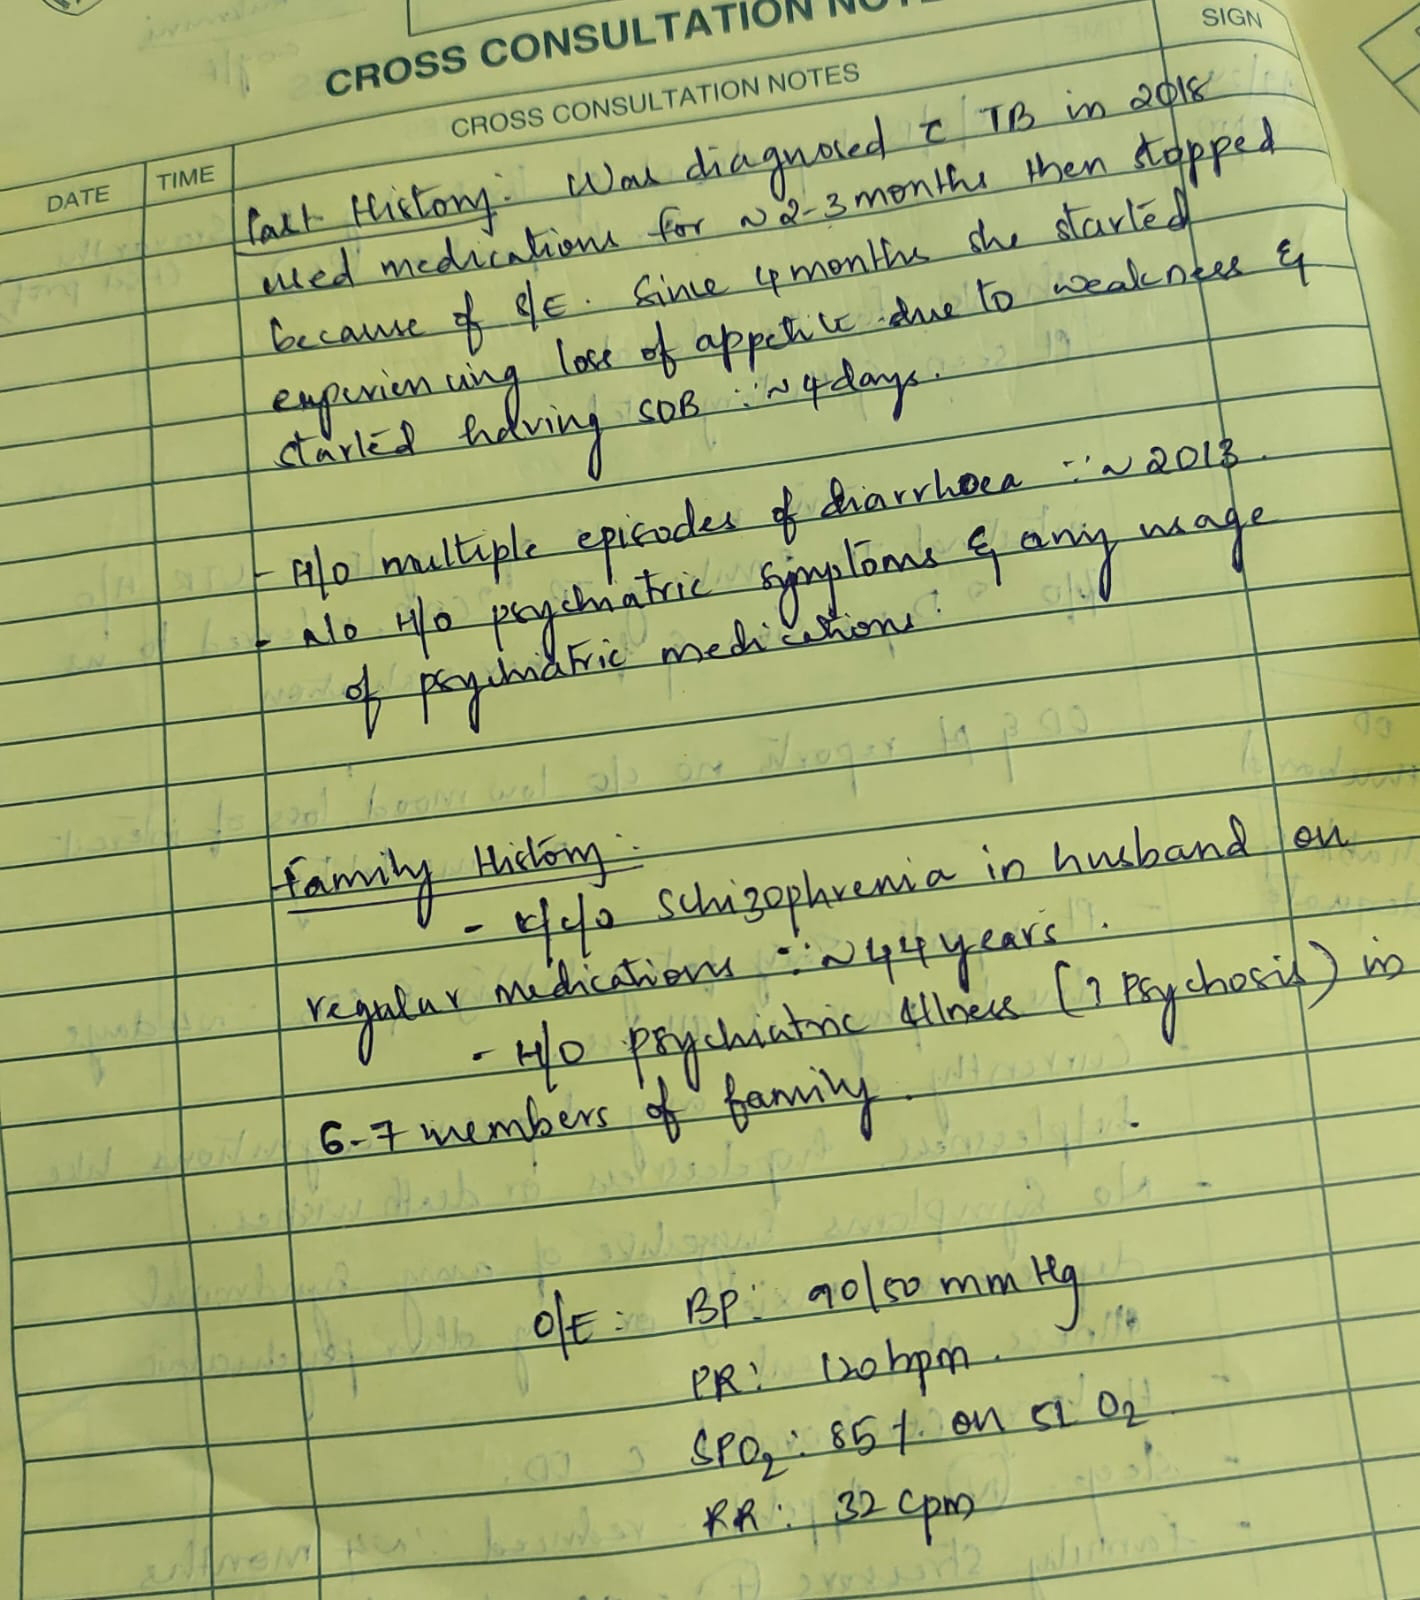 CROSS CONSULTATION
CROSS CONSULTATION NOTES
SIGN
DATE
TIME
Past History: Was diagnosed c̄ TB in 2018
used medications for ~2-3 months then stopped
because of S/E. Since 4 months she started
experiencing loss of appetite due to weakness &
started having SOB ∵ ~4 days.
- H/O multiple episodes of diarrhoea ∵ ~2013.
- No H/O psychiatric symptoms & any usage
of psychiatric medications.
Family History:
- K/c/o Schizophrenia in husband on
regular medications ∵ ~44 years.
- H/O psychiatric illness (? Psychosis) in
6-7 members of family.
O/E: BP: 90/50 mm Hg
PR: 120 bpm.
SPO₂: 85 % on 5L O₂
RR: 32 cpm